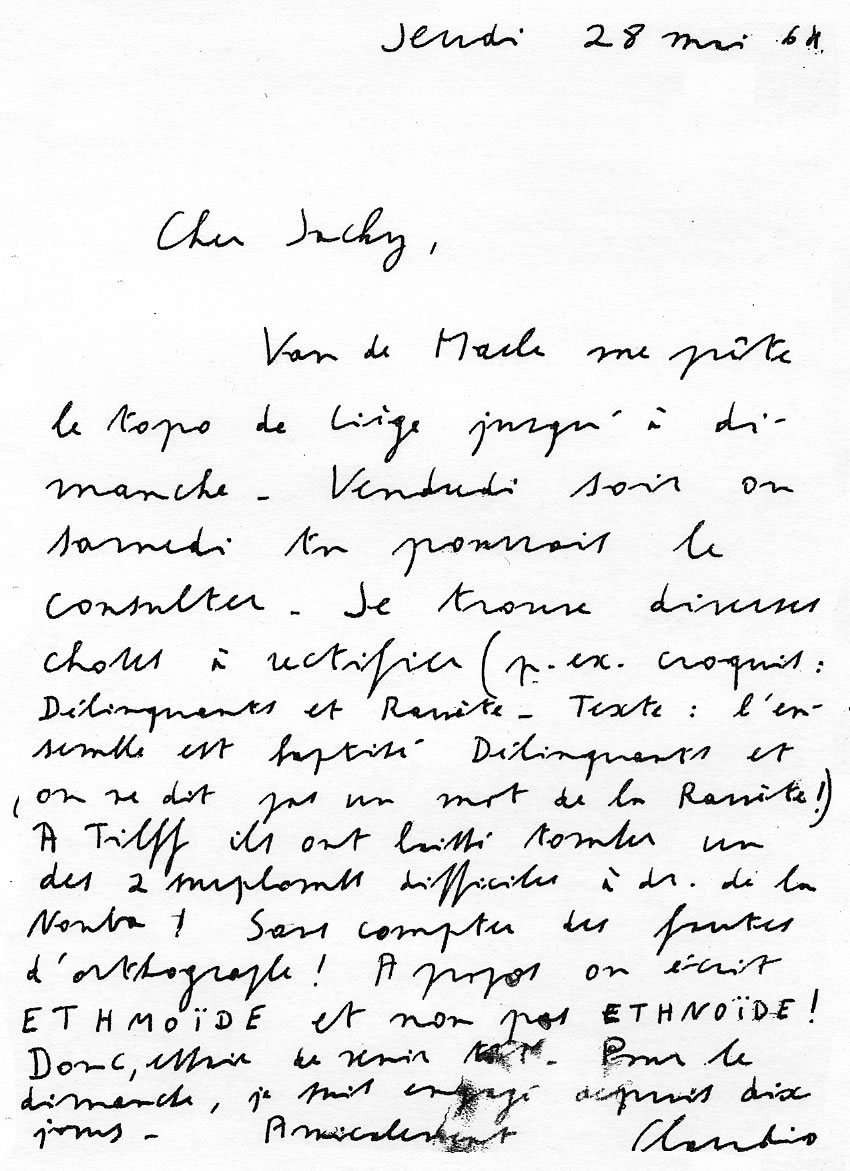 Jeudi 28 mai 64.
Cher Jacky,
Van de Maele me prête
le topo de Liège jusqu'à di-
manche - Vendredi soir ou
samedi tu pourrais le
consulter - Je trouve diverses
choses à rectifier (p.ex. croquis :
Délinquants et Ravière - Texte : l'en-
semble est baptisé Délinquants et
on ne dit pas un mot de la Ravière !)
A Tilff ils ont laissé tomber un
des 2 surplombs difficiles à dr. de la
Nouba ! Sans compter des fautes
d'orthographe ! A propos on écrit
ETHMOÏDE et non pas ETHNOÏDE !
Donc, essaie de venir tôt - Pour le
dimanche, je suis engagé depuis dix
jours - Amicalement Claudio